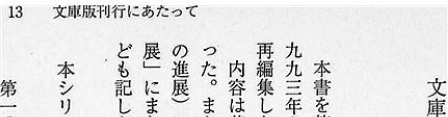 13 文庫版刊行にあたって
文庫
本書を
九九三年
再編集し
内容は
った。ま
の進展）
展」にま
ども記し
本シリ
第一